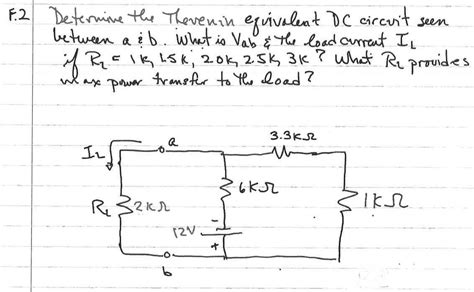 F.2 Determine the Thevenin equivalent DC circuit seen
between a & b. What is Vab & the load current IL
if RL = 1K, 1.5K, 2.0K, 2.5K, 3K? What RL provides
max power transfer to the load?
3.3KΩ
a
IL
6KΩ
1KΩ
RL 2KΩ
-
12V
+
b